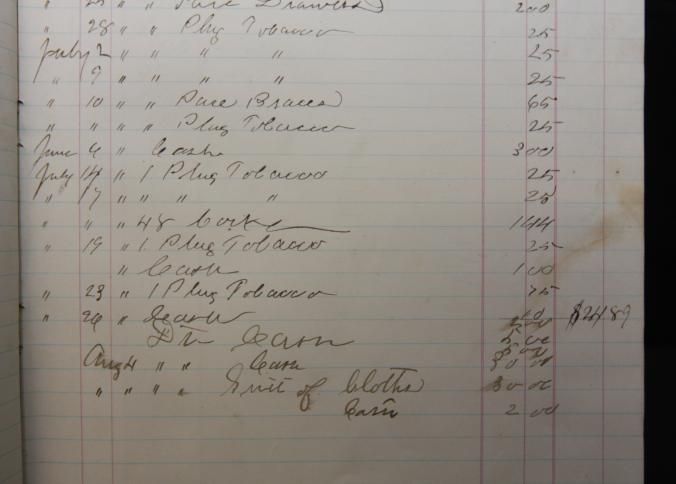 " 25 " " Pare Drawers 2 00
" 28 " " Plug Tobacco 25
July 2 " " " " 25
" 9 " " " " 25
" 10 " " Pare Braces 65
" " " " Plug Tobacco 25
June 4 " Cash 3 00
July 14 " 1 Plug Tobacco 25
" 7 " " " " 25
" " " 48 1 44
" 19 " 1 Plug Tobacco 25
" Cash 1 00
" 23 " 1 Plug Tobacco 25
" 26 " $24 89
Cash 5 00
Aug 4 " " Cash
" " " " Suit of Cloths 00
Cash 2 00